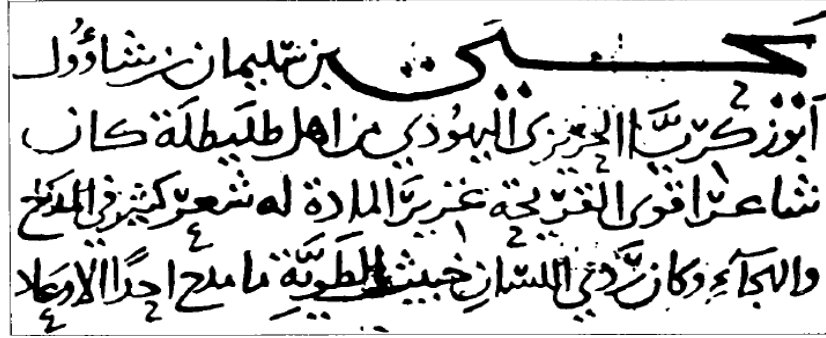 يحيى بن سليمان بن شاؤول
أبو زكريَّا الحريزي اليهُودي من اهل طليطلة كان
شاعرا قوى القريحة غزير المادة له شعر كثير في المدح
والهجآءِ وكان رَدئ اللسَانِ خبيث الطَويَّةِ ما مدح احدًا الا وعاد